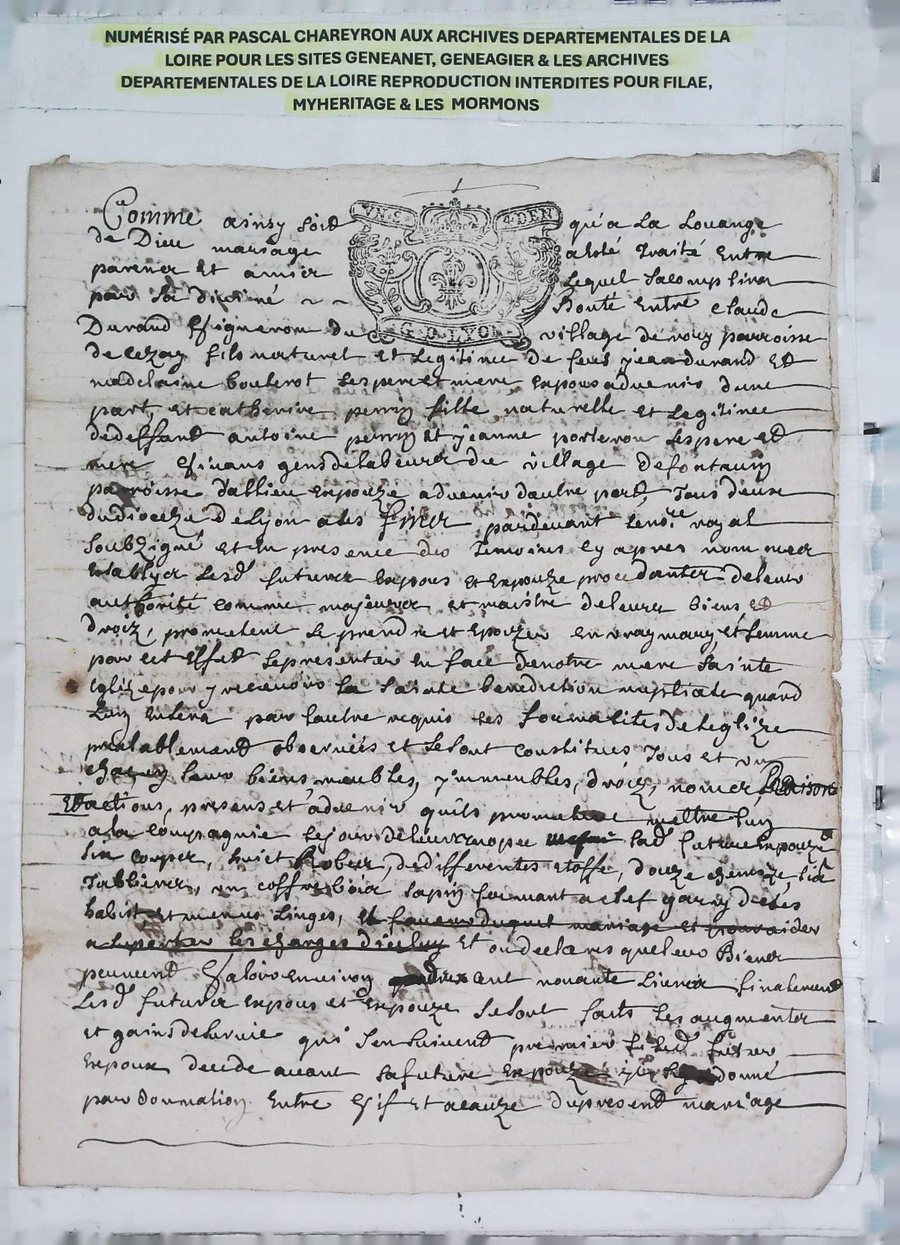 NUMÉRISÉ PAR PASCAL CHAREYRON AUX ARCHIVES DEPARTEMENTALES DE LA
LOIRE POUR LES SITES GENEANET, GENEAGIER & LES ARCHIVES
DEPARTEMENTALES DE LA LOIRE REPRODUCTION INTERDITES POUR FILAE,
MYHERITAGE & LES MORMONS
Comme ainsy soit qu'a La Louange
de Dieu mariage a esté traité Entre
parener Et amier Lequel sacomplira
par sa divine Bonté Entre claude
G.D.LYON
Durand vigneron du village de paroisse
de cezay fils naturel et Legitime de feus Jean durand Et
madelaine Lespere et mere Expous advenir dune
part, et catherine perrin fille naturelle et Legitime
de deffunt antoine perrin Et jeanne Lespere et
mere vivans gens de labeur du village de
paroisse d'allieu Expouze advenir d'autre part, Tous deux
du dioceze de Lyon par devant Le no.re royal
soubzigné et En presence des Temoins cy apres nommer
Establyer Lesd. futurer Expous et Expouze procedanter de leur
authorité comme majeurer et maistre de leurer biens Et
droiz, prometent se prendre et Epouzer en vray mary et femme
par cet Effet se presenter En face de notre mere sainte
Eglize pour y recevoir La sainte benediction nuptiale quand
Lun En sera par Lautre requis Les formalites de Leglize
prealablemand observées et se sont constitués Tous et un
chacun Leur biens meubles, ymmeubles, droiz, nomer, Raisons
Et actions, presens et advenir quils promettre
a la compagnie Le jour de Leurer nopce Lad. future Expouze
six corper, Robes, de differentes etoffe, douze chemize, six
Tablierer, un coffre boix sapin fermant a clef garny de ses
habist et menus Linges, et faveur duquel mariage et pour aider
a suporter Les charges d'iceluy Et ont declares que leur Biener
peuvent valoir environ cent novante Livrer finalement
Lesd. futurer Expous et Expouze se sont faits Les augmenter
et gains de survie qui sensuivent premier si Led. futur
Expoux decede avant sa future Expouze donne
par donnation Entre vif Et a cauze du present mariage